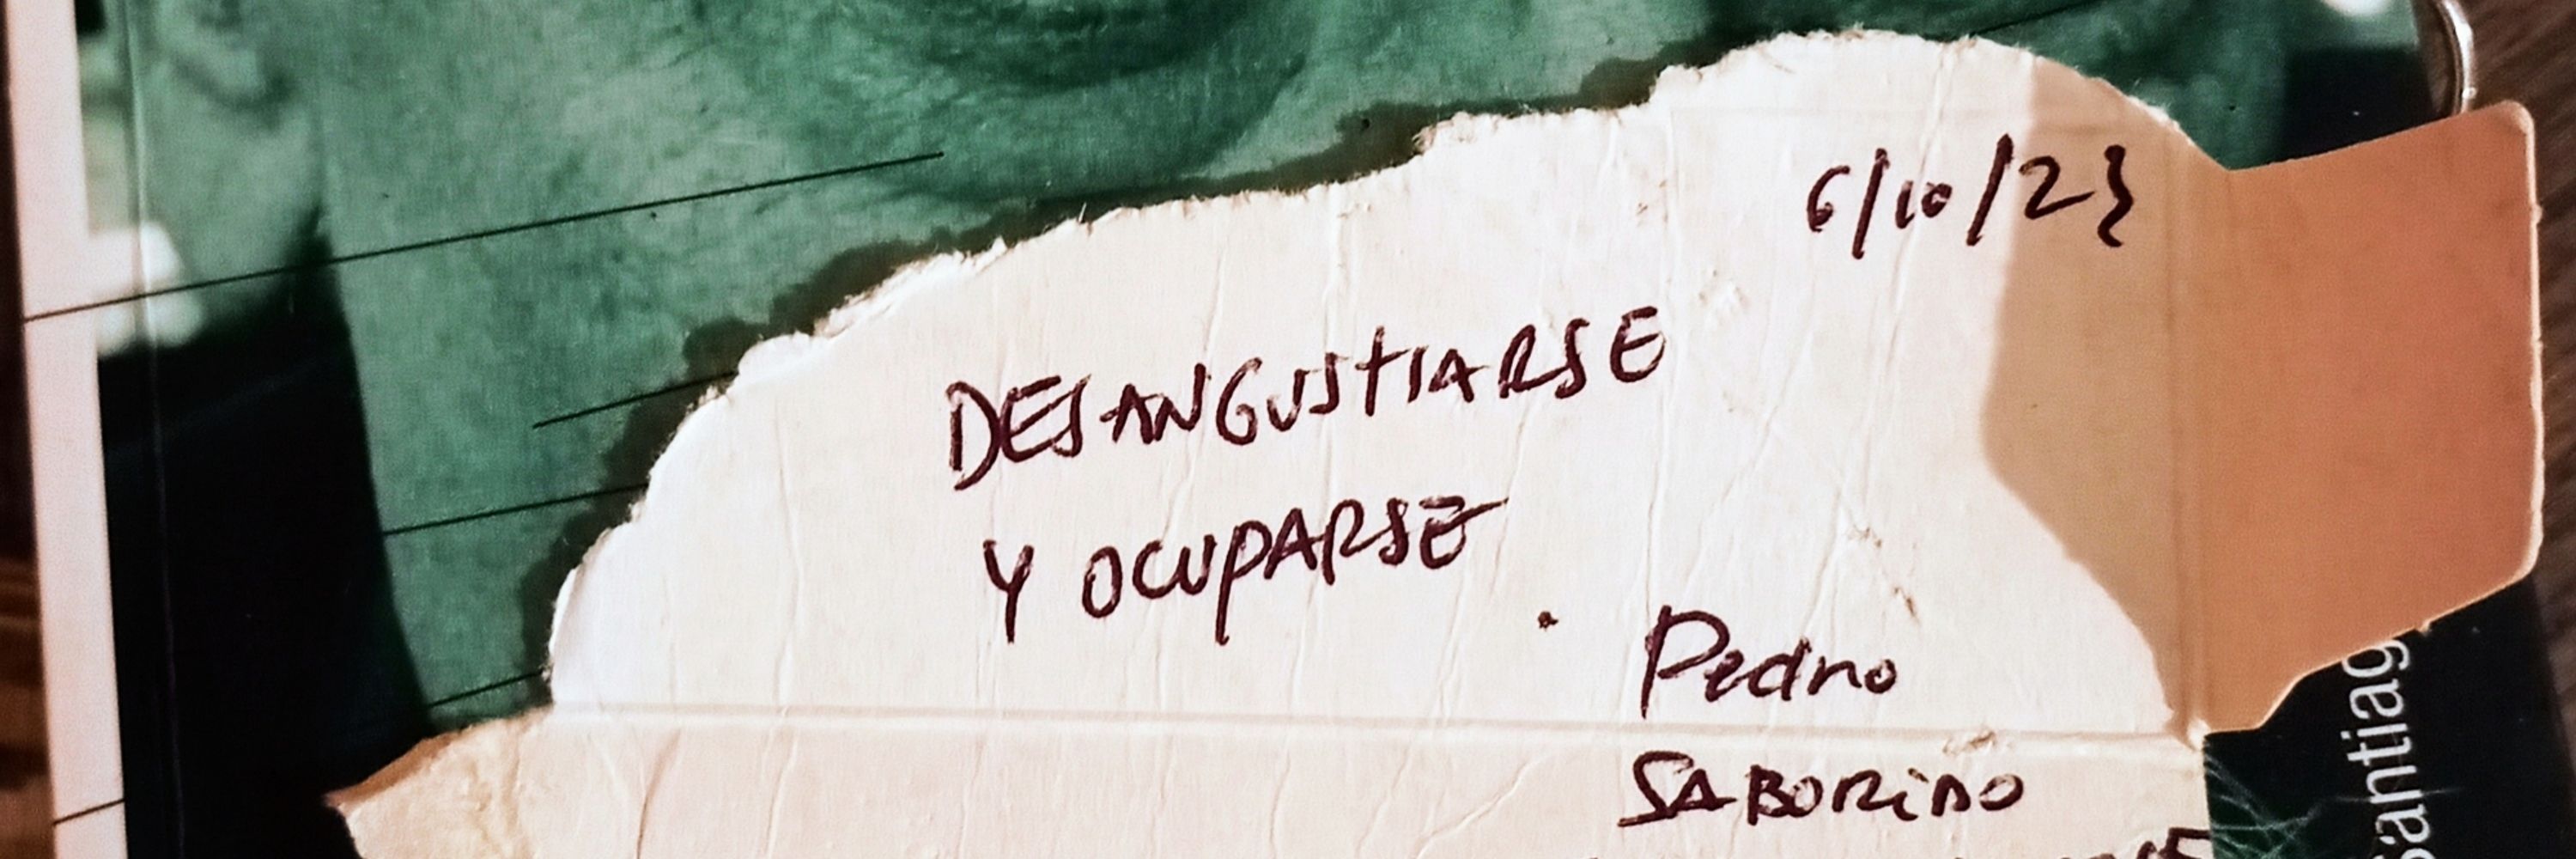 6/10/23
DESANGUSTIARSE
Y OCUPARSE
. Pedro
SABORIDO
Santiag